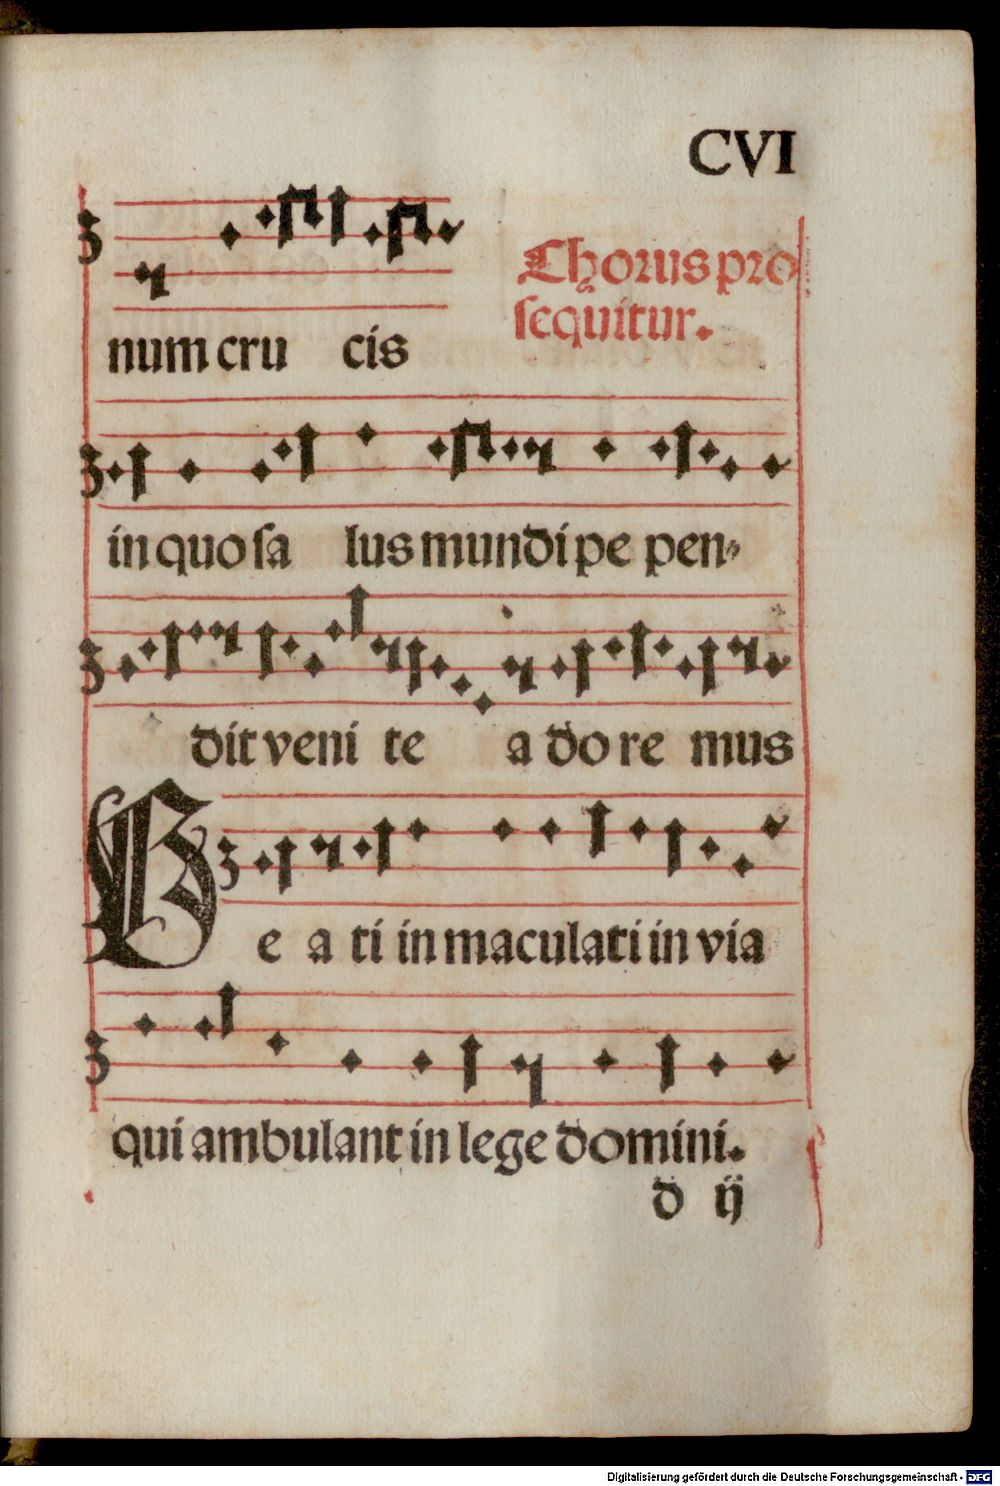 CVI
Chorus pro
sequitur.
num cru cis
in quo sa lus mundi pe pen-
dit veni te a do re mus
Be a ti in maculati in via
qui ambulant in lege domini.
d ij
Digitalisierung gefördert durch die Deutsche Forschungsgemeinschaft - DFG